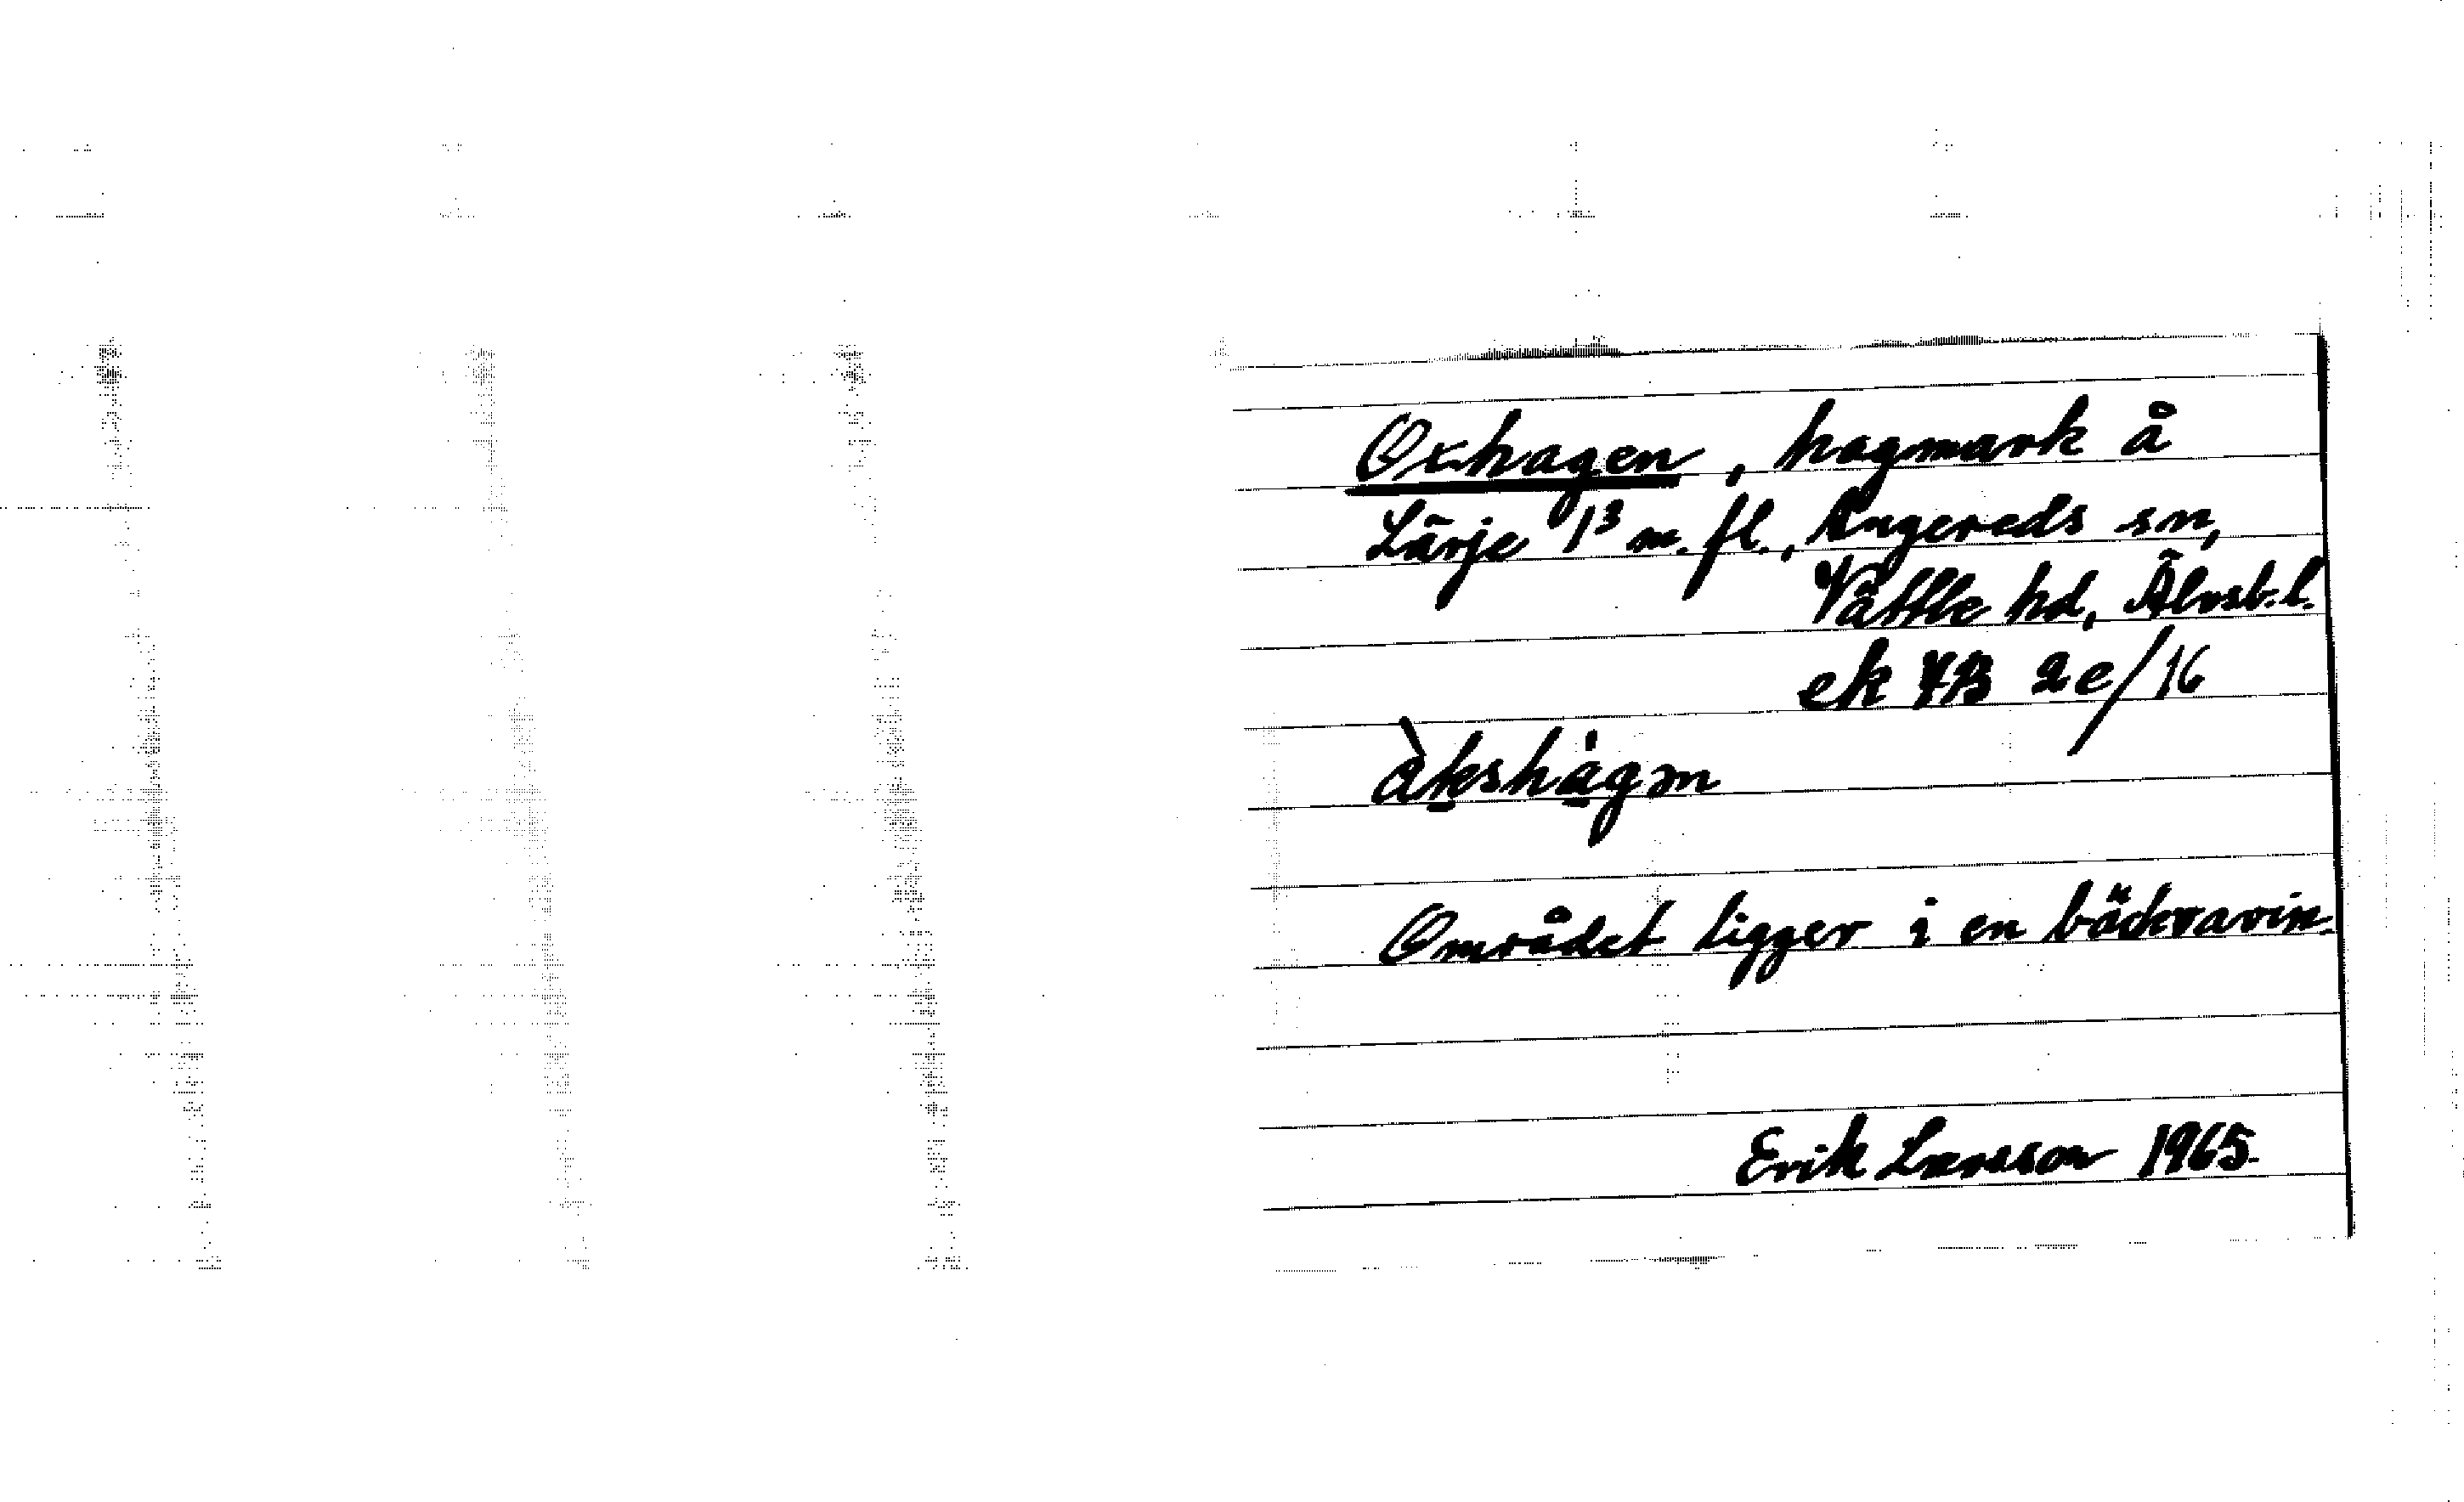 Oxhagen, hagmark å
Lärje 1³ m. fl., Angereds sn,
Vättle hd, Älvsb. l.
ek 7B 2e/16
àkshàgən
Området ligger i en bäckravin.
Erik Larsson 1965